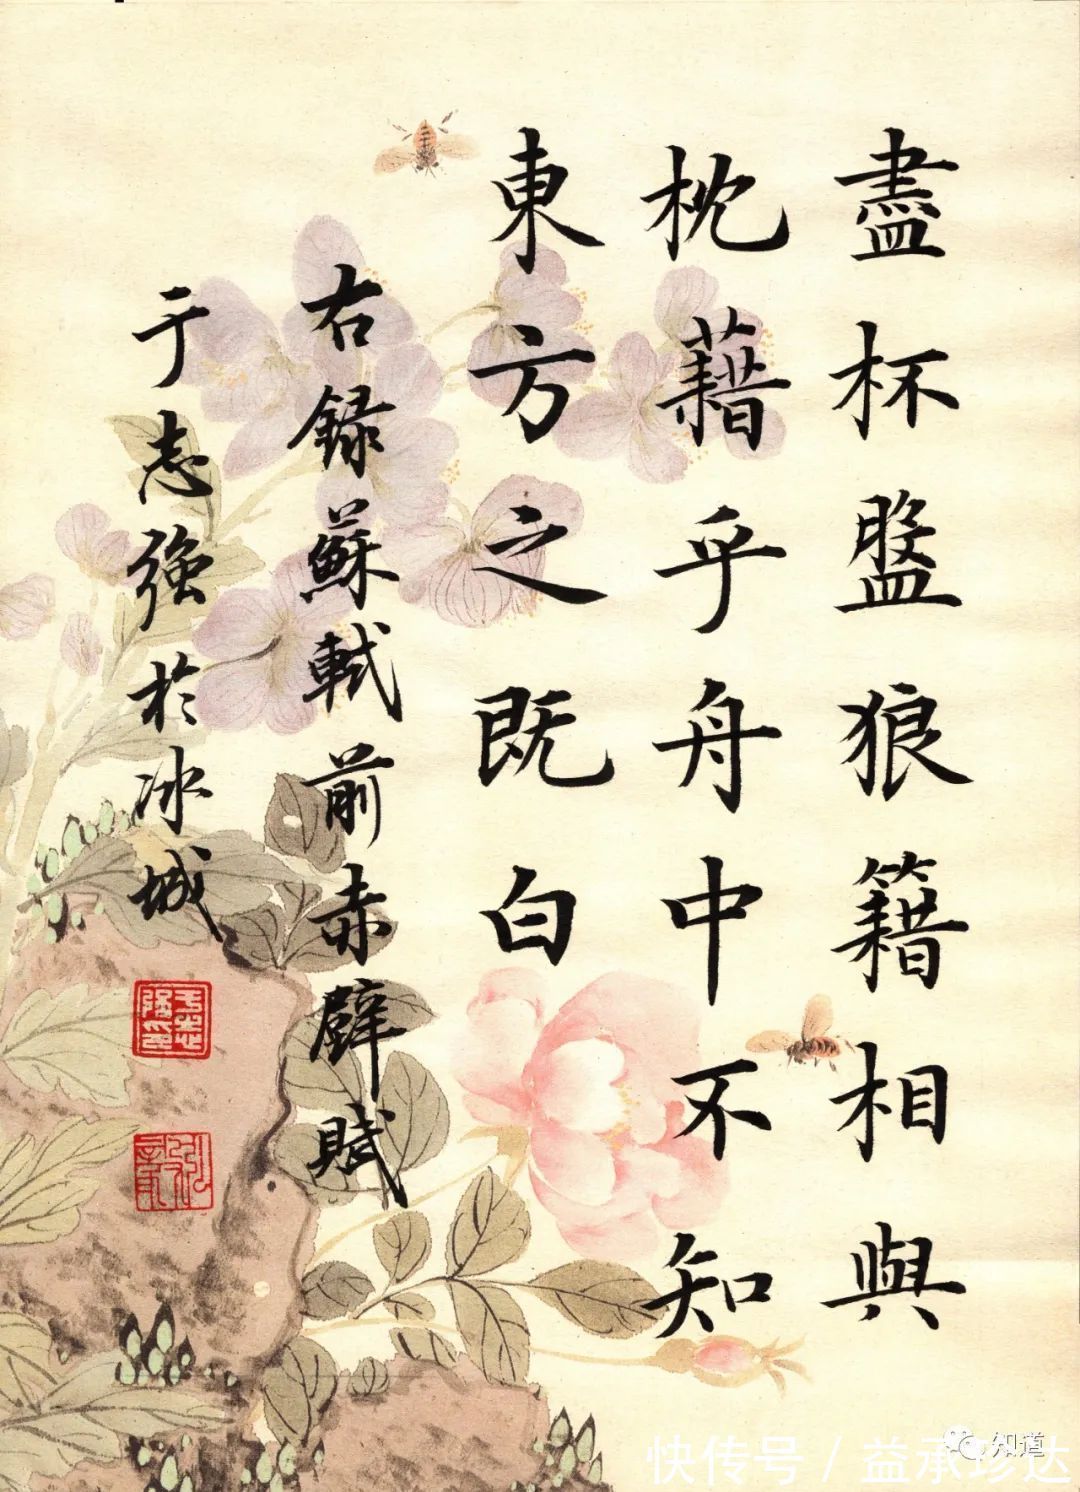 盡杯盤狼籍相與
枕藉乎舟中不知
東方之既白
右録蘇軾前赤壁賦
于志強於冰城
知道
快传号 / 益承珍达